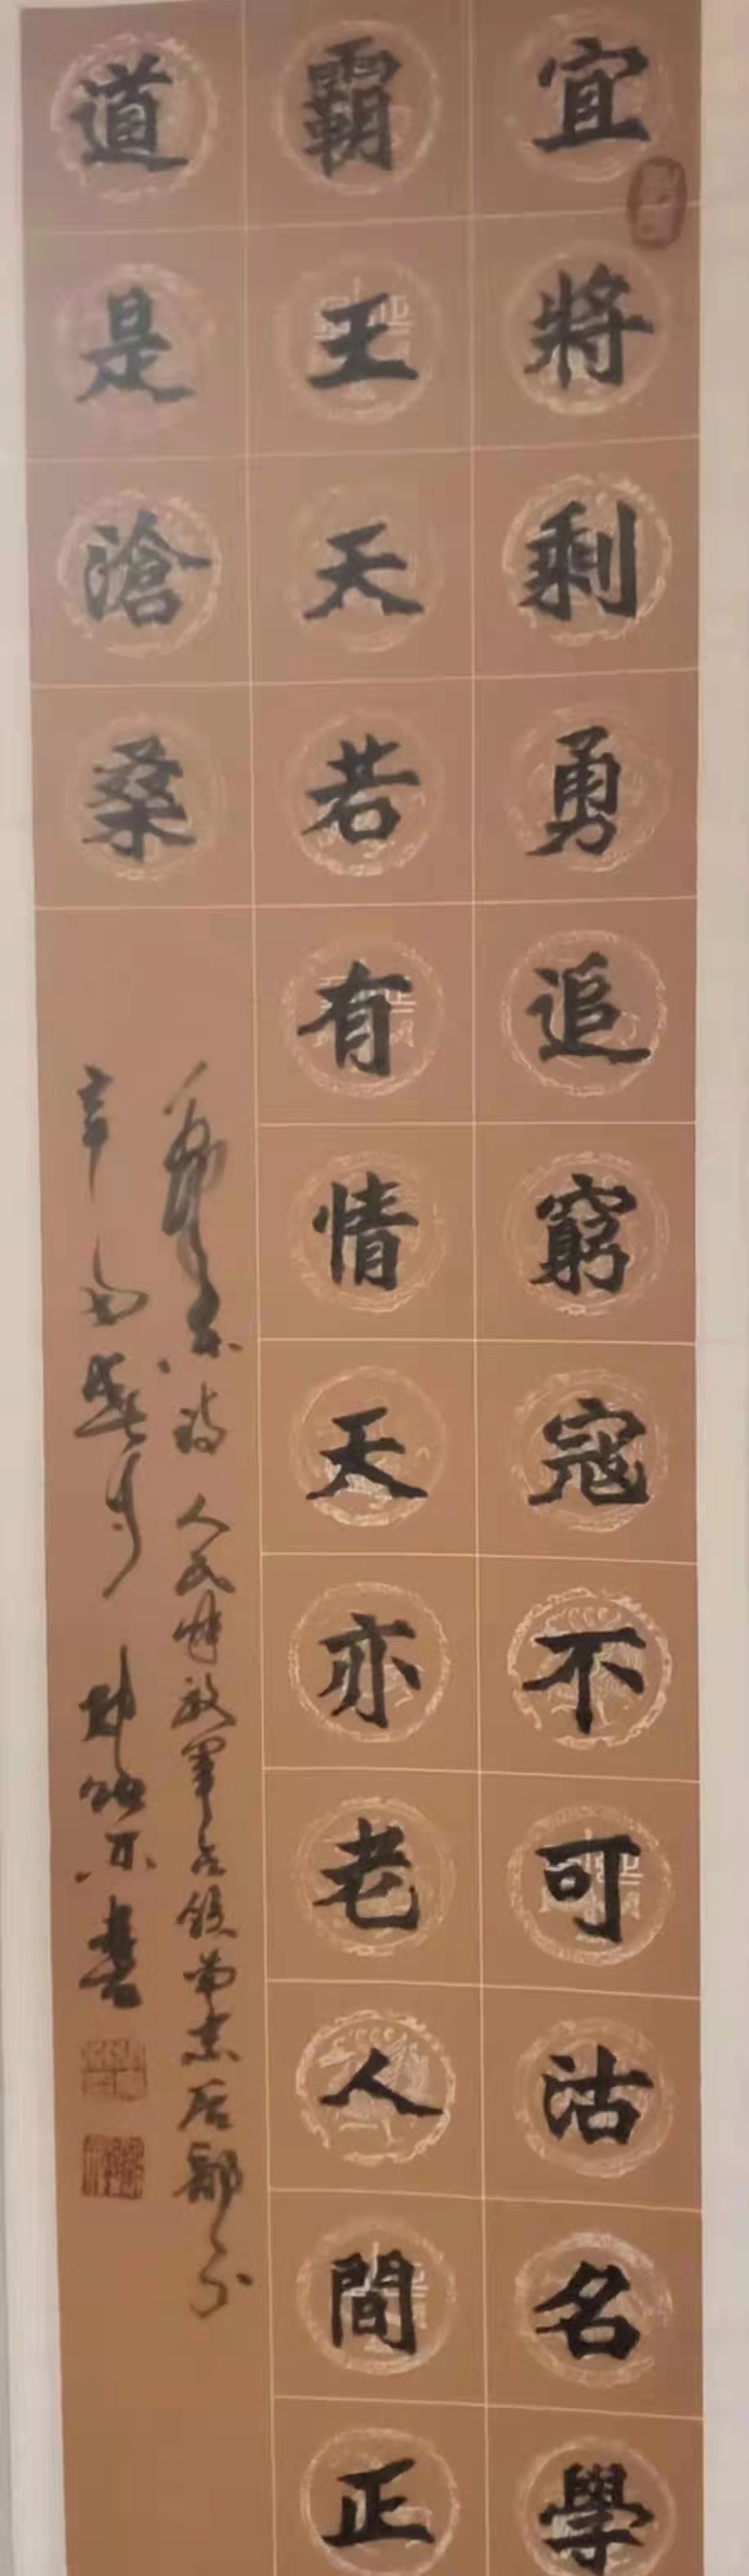 宜將剩勇追窮寇不可沽名學
霸王天若有情天亦老人間正
道是滄桑
詩人民解放軍占領南京后部分
辛丑
書